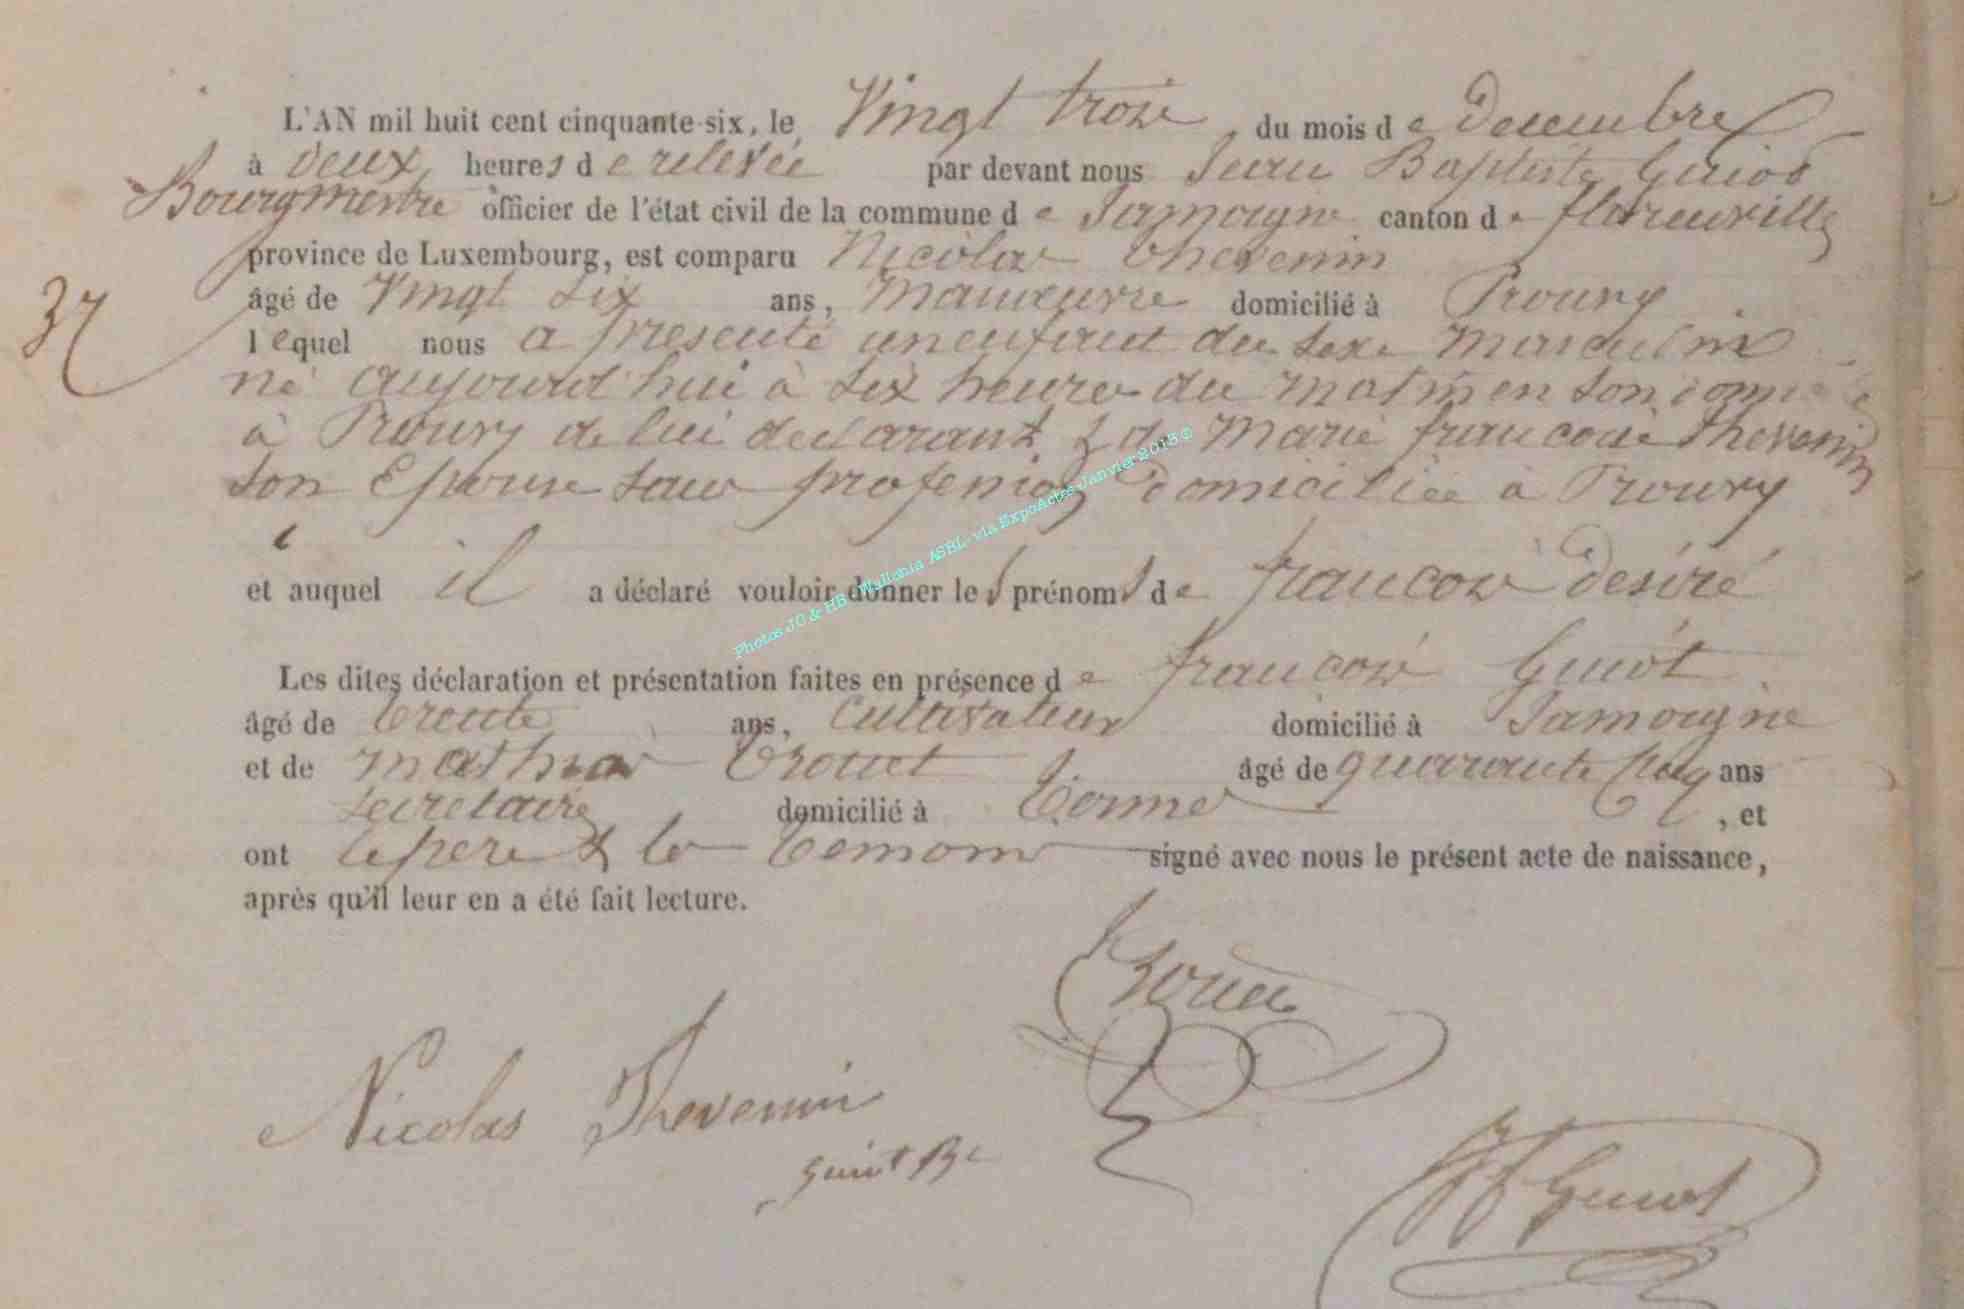 L'AN mil huit cent cinquante-six, le Vingt trois du mois de Decembre
à deux heures de relevée par devant nous Jean Baptiste Guiot
Bourgmestre officier de l'état civil de la commune de Jamoigne canton de florenville
province de Luxembourg, est comparu Nicolas thevenin
âgé de Vingt six ans, manœuvre domicilié à Prouvy
37
lequel nous a presenté un enfant du sexe masculin
né aujourd'hui à six heures du matin en son domicile
à Prouvy de lui declarant & de Marie francoise thevenin
son Epouse sans profession domiciliée à Prouvy
et auquel il a déclaré vouloir donner les prénoms de francois Désiré
Photos JC & HB - Wallonia ASBL - via ExpoActes Janvier 2015 ©
Les dites déclaration et présentation faites en présence de francois Guiot
âgé de trente ans, cultivateur domicilié à Jamoigne
et de mathias trouet âgé de quarante cinq ans
secretaire domicilié à termes, et
ont le pere & les temoins signé avec nous le présent acte de naissance,
après qu'il leur en a été fait lecture.
Trouet
Nicolas Thevenin
Guiot
Guiot